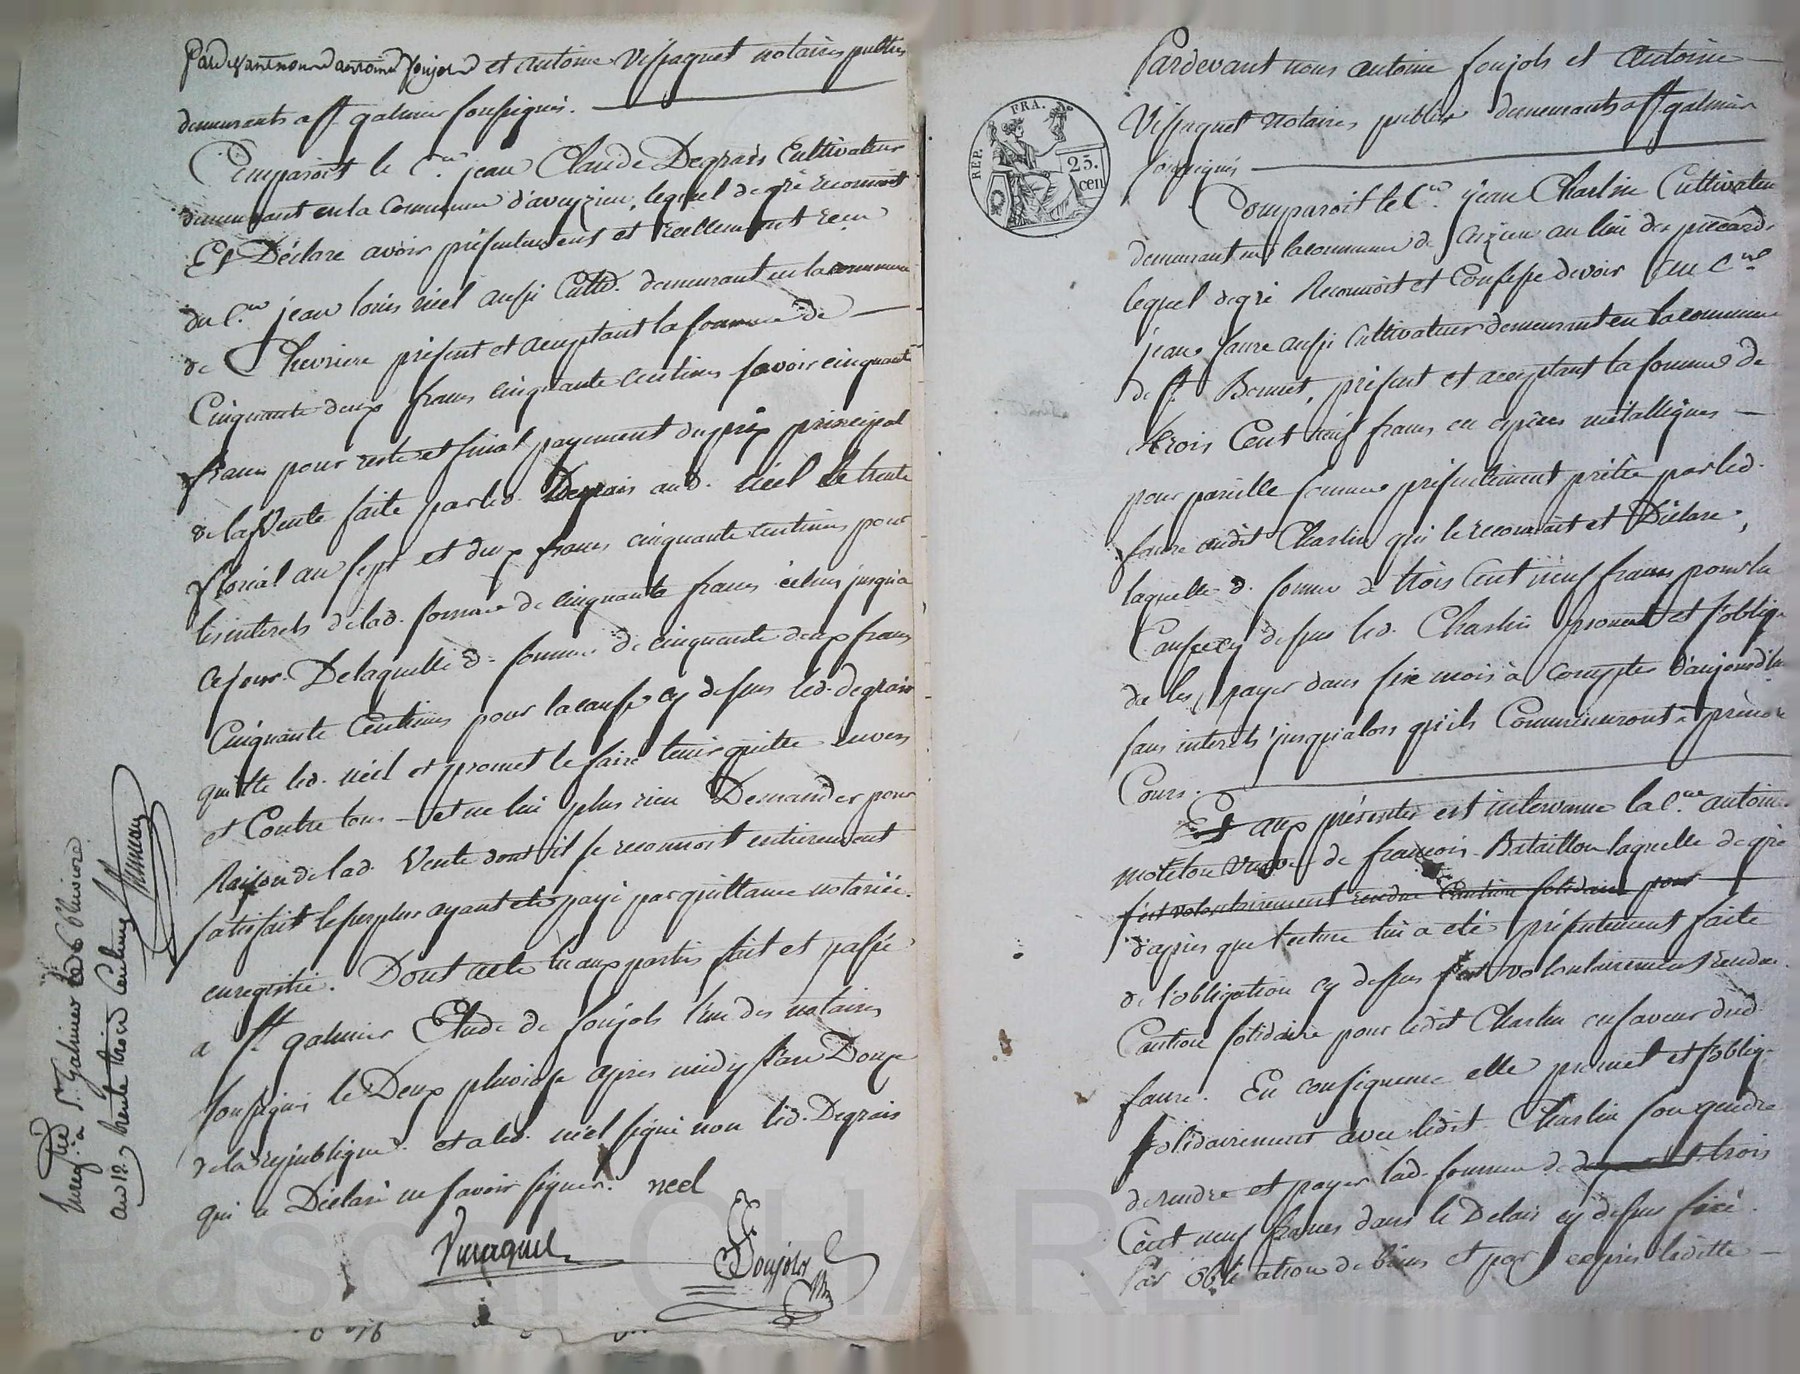 Pardevant nous antoine Soujols et antoine Vissaguet notaires publics
demeurants a st. galmier soussignés.
Comparoit le C.en jean Claude Degrais Cultivateur
demeurant en la Commune d'aveyzieu, lequel de gré reconnoit
Et Déclare avoir présentement et reellement reçu
du C.en jean louis néel aussi Cultr. demeurant en la commune
de Chevriere présent et acceptant la somme de
Cinquante deux francs cinquante centimes savoir cinquante
francs pour reste et final payement du prix principal
de la Vente faite par led. Degrais aud. néel le trente
floréal an sept et deux francs cinquante centimes pour
les interets de lad. somme de cinquante francs échus jusqu'a
ce jour. De laquelle d. somme de cinquante deux francs
Cinquante Centimes pour la cause cy dessus led. degrais
quitte led. néel et promet le faire tenir quitte envers
et Contre tous et ne lui plus rien Demander pour
Raison de lad. Vente dont il se reconnoit entierement
satisfait le surplus ayant été payé par quittance notariée
enregistrée. Dont acte lu aux parties fait et passé
a st. galmier Etude de Soujols l'un des notaires
soussignés le Deux pluviose apres midy l'an Douze
de la république et a led. néel signé non led. Degrais
qui a Déclaré ne savoir signer. neel
Vissaguet
Soujols
Enreg.é a St. Galmier le 6 Pluviose
an 12 trente trois Centimes
REP. FRA.
25. cen
Pardevant nous antoine Soujols et antoine
Vissaguet notaires publics demeurants a st galmier
soussignés
Comparoit le C.en jean Charlin Cultivateur
demeurant en la commune de au lieu des
lequel de gré Reconnoit et Confesse devoir au C.en
jean faure aussi Cultivateur demeurant en la commune
de st. Bonnet, présent et acceptant la somme de
trois Cent neuf francs en espèces métalliques
pour pareille somme présentement prêtée par led.
faure audit Charlin qui le reconnoit et Déclare,
laquelle d. somme de trois Cent neuf francs pour la
Cause cy dessus led. Charlin promet et s'oblige
de les payer dans six mois à compter d'aujourd'hui
sans interets jusqu'alors qu'ils Commenceront à prendre
Cours.
Et aux présentes est intervenue la C.ne antoine
motelou veuve de françois Bataillon laquelle de gré
s'est volontairement rendue Caution solidaire pour
d'après que lecture lui a été présentement faite
de l'obligation cy dessus s'est volontairement rendue
Caution solidaire pour ledit Charlin en faveur dud.
faure. En conséquence elle promet et s'oblige
solidairement avec ledit Charlin son gendre
de rendre et payer lad. somme de trois
Cent neuf francs dans le Delais cy dessus fixé.
Par obligation de biens et par exprès ladite